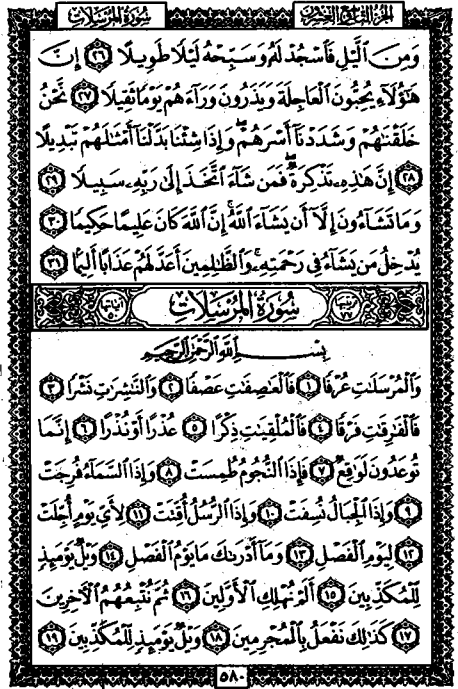 سُورَةُ المُرْسَلَات
الجزء التاسع والعشرون
وَمِنَ ٱلَّيۡلِ فَٱسۡجُدۡ لَهُۥ وَسَبِّحۡهُ لَيۡلٗا طَوِيلًا ٢٦ إِنَّ
هَٰٓؤُلَآءِ يُحِبُّونَ ٱلۡعَاجِلَةَ وَيَذَرُونَ وَرَآءَهُمۡ يَوۡمٗا ثَقِيلٗا ٢٧ نَّحۡنُ
خَلَقۡنَٰهُمۡ وَشَدَدۡنَآ أَسۡرَهُمۡۖ وَإِذَا شِئۡنَا بَدَّلۡنَآ أَمۡثَٰلَهُمۡ تَبۡدِيلًا
٢٨ إِنَّ هَٰذِهِۦ تَذۡكِرَةٞۖ فَمَن شَآءَ ٱتَّخَذَ إِلَىٰ رَبِّهِۦ سَبِيلٗا ٢٩
وَمَا تَشَآءُونَ إِلَّآ أَن يَشَآءَ ٱللَّهُۚ إِنَّ ٱللَّهَ كَانَ عَلِيمًا حَكِيمٗا ٣٠
يُدۡخِلُ مَن يَشَآءُ فِي رَحۡمَتِهِۦۚ وَٱلظَّٰلِمِينَ أَعَدَّ لَهُمۡ عَذَابًا أَلِيمَۢا ٣١
سُورَةُ المُرْسَلَات
بِسۡمِ ٱللَّهِ ٱلرَّحۡمَٰنِ ٱلرَّحِيمِ
وَٱلۡمُرۡسَلَٰتِ عُرۡفٗا ١ فَٱلۡعَٰصِفَٰتِ عَصۡفٗا ٢ وَٱلنَّٰشِرَٰتِ نَشۡرٗا ٣
فَٱلۡفَٰرِقَٰتِ فَرۡقٗا ٤ فَٱلۡمُلۡقِيَٰتِ ذِكۡرًا ٥ عُذۡرًا أَوۡ نُذۡرًا ٦ إِنَّمَا
تُوعَدُونَ لَوَٰقِعٞ ٧ فَإِذَا ٱلنُّجُومُ طُمِسَتۡ ٨ وَإِذَا ٱلسَّمَآءُ فُرِجَتۡ
٩ وَإِذَا ٱلۡجِبَالُ نُسِفَتۡ ١٠ وَإِذَا ٱلرُّسُلُ أُقِّتَتۡ ١١ لِأَيِّ يَوۡمٍ أُجِّلَتۡ
١٢ لِيَوۡمِ ٱلۡفَصۡلِ ١٣ وَمَآ أَدۡرَىٰكَ مَا يَوۡمُ ٱلۡفَصۡلِ ١٤ وَيۡلٞ يَوۡمَئِذٖ
لِّلۡمُكَذِّبِينَ ١٥ أَلَمۡ نُهۡلِكِ ٱلۡأَوَّلِينَ ١٦ ثُمَّ نُتۡبِعُهُمُ ٱلۡأٓخِرِينَ
١٧ كَذَٰلِكَ نَفۡعَلُ بِٱلۡمُجۡرِمِينَ ١٨ وَيۡلٞ يَوۡمَئِذٖ لِّلۡمُكَذِّبِينَ ١٩
٥٨٠